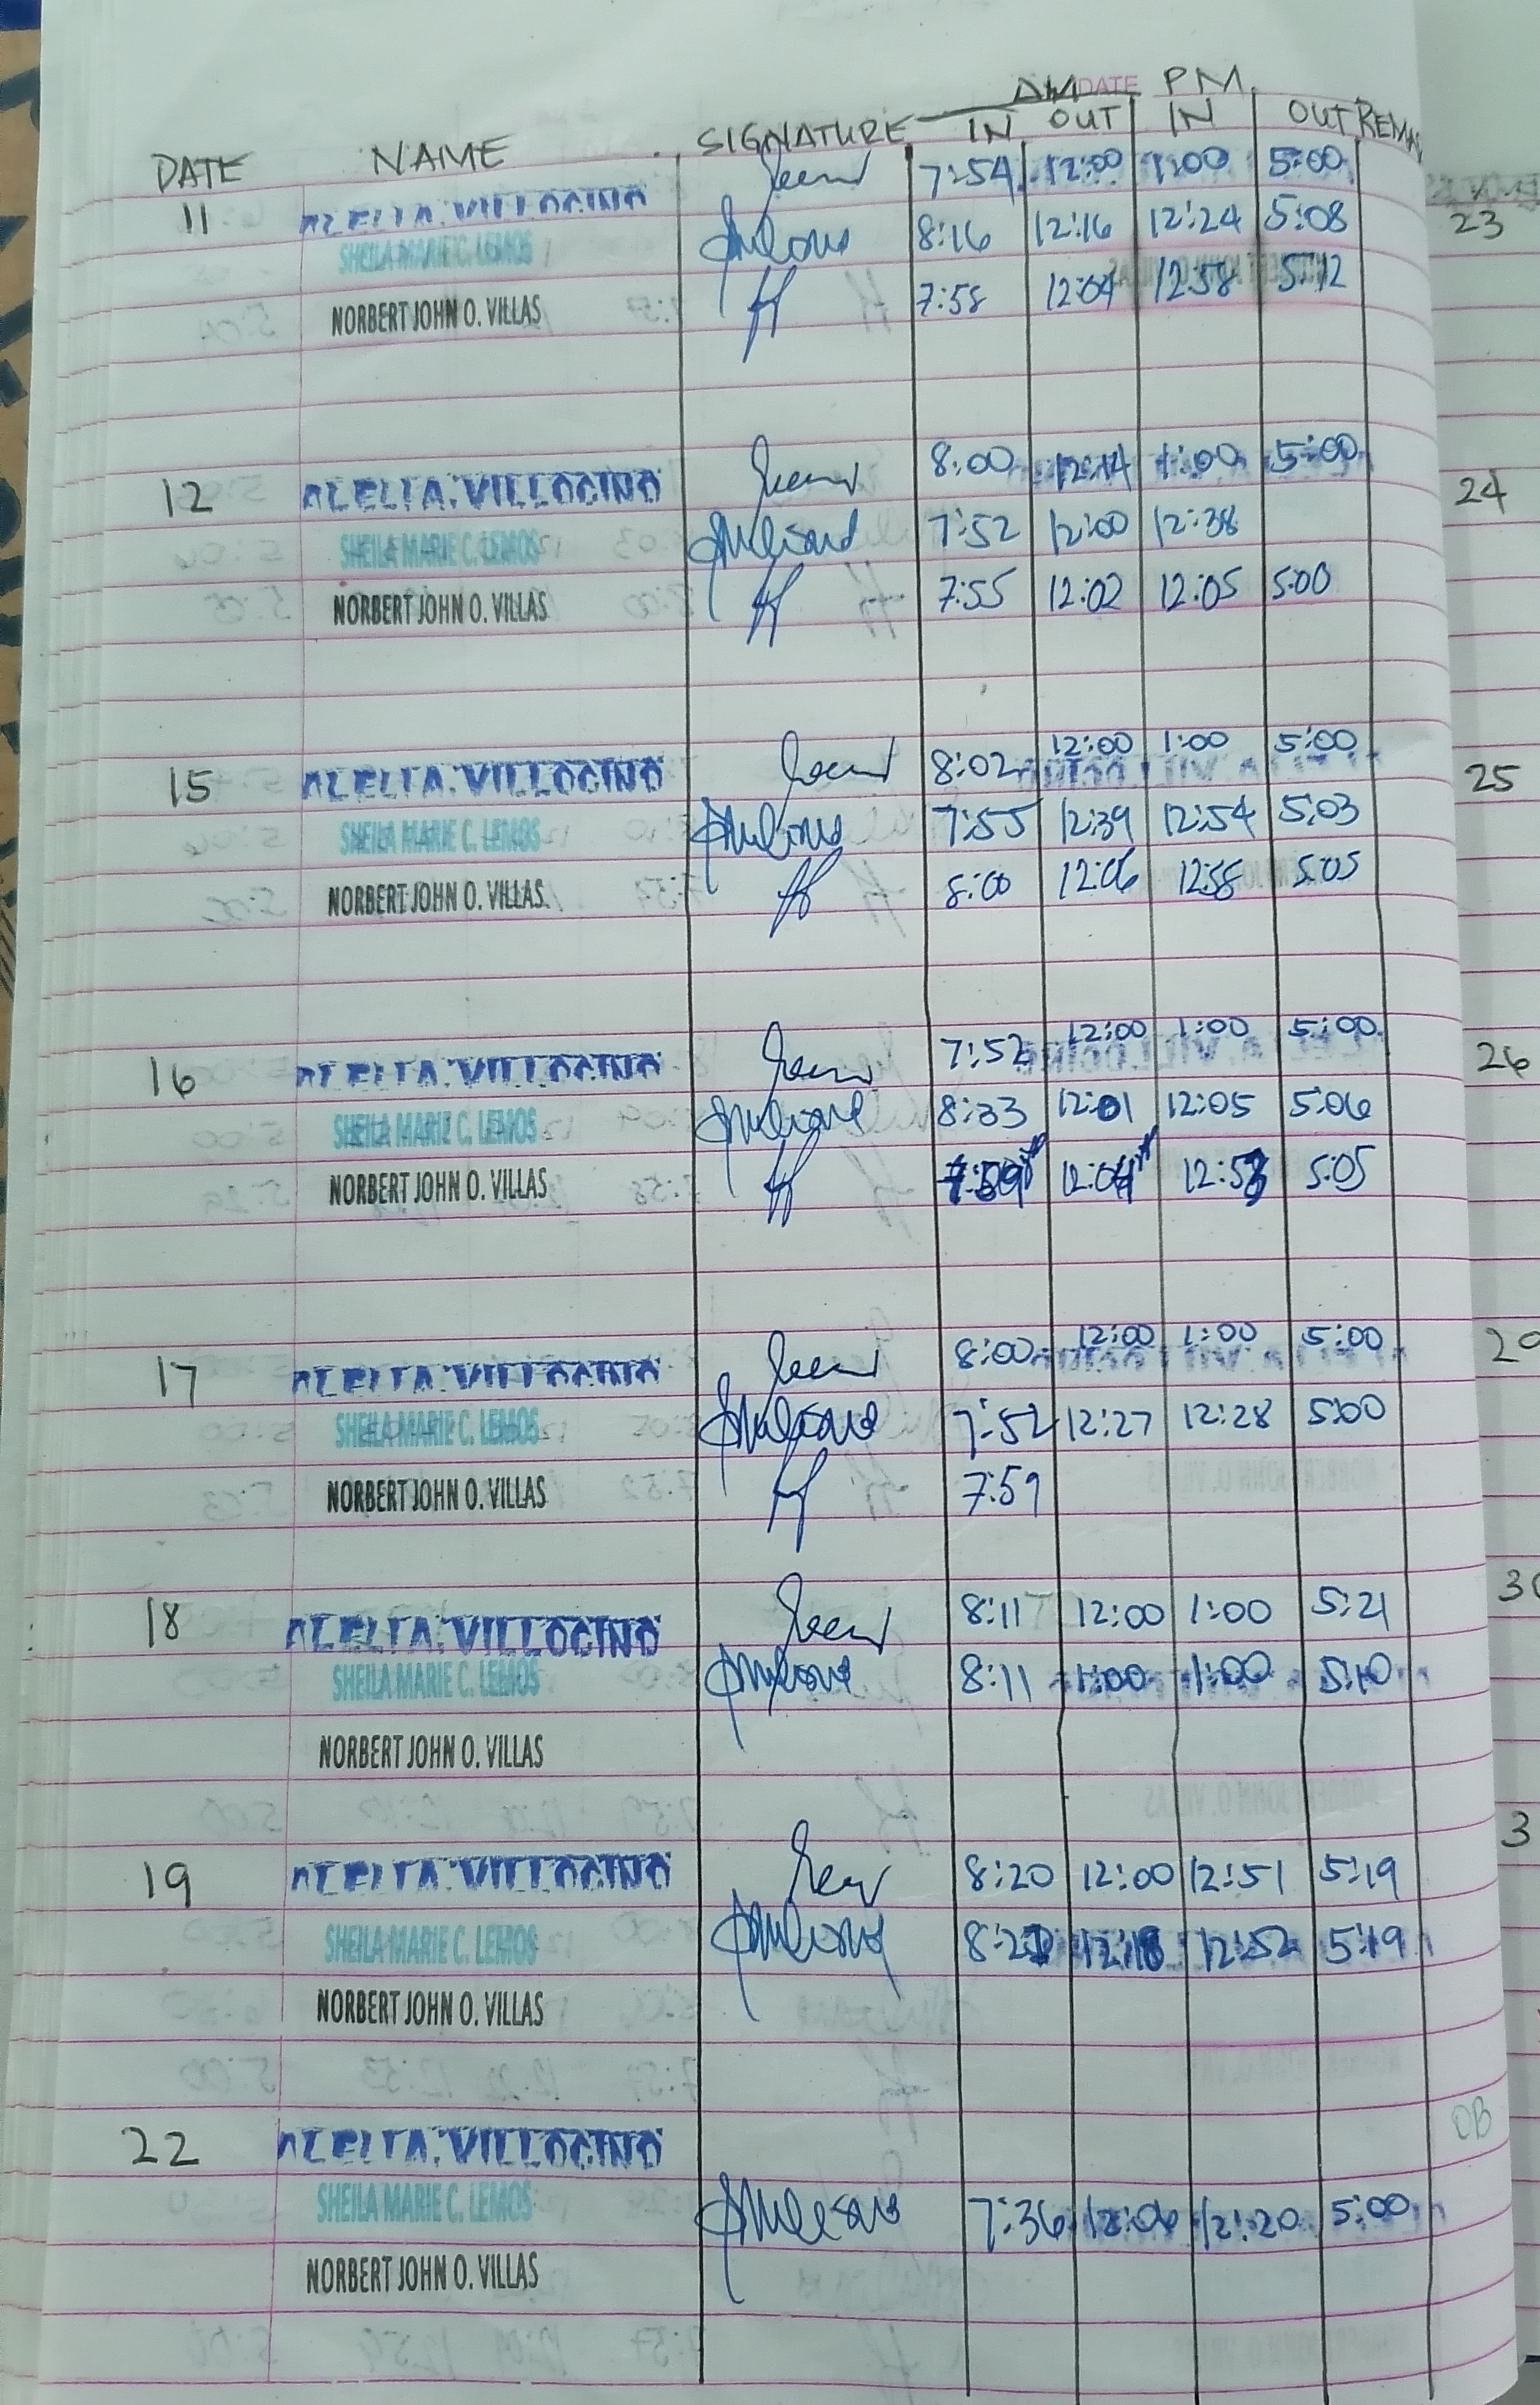 AM DATE PM
DATE NAME SIGNATURE IN OUT IN OUT REMA
11 ALELI A. VILLOCINO 7:54 12:00 1:00 5:00
SHEILA MARIE C. LEMOS 8:16 12:16 12:24 5:08
NORBERT JOHN O. VILLAS 7:58 12:04 12:58 5:12
12 ALELI A. VILLOCINO 8:00 12:14 1:00 5:00
SHEILA MARIE C. LEMOS 7:52 12:00 12:38
NORBERT JOHN O. VILLAS 7:55 12:02 12:05 5:00
15 ALELI A. VILLOCINO 8:02 12:00 1:00 5:00
SHEILA MARIE C. LEMOS 7:55 12:39 12:54 5:03
NORBERT JOHN O. VILLAS 8:00 12:06 12:58 5:05
16 ALELI A. VILLOCINO 7:52 12:00 1:00 5:00
SHEILA MARIE C. LEMOS 8:33 12:01 12:05 5:06
NORBERT JOHN O. VILLAS 7:59 12:04 12:53 5:05
17 ALELI A. VILLOCINO 8:00 12:00 1:00 5:00
SHEILA MARIE C. LEMOS 7:52 12:27 12:28 5:00
NORBERT JOHN O. VILLAS 7:59
18 ALELI A. VILLOCINO 8:11 12:00 1:00 5:21
SHEILA MARIE C. LEMOS 8:11 1:00 1:00 5:10
NORBERT JOHN O. VILLAS
19 ALELI A. VILLOCINO 8:20 12:00 12:51 5:19
SHEILA MARIE C. LEMOS 12:18 12:52 5:19
NORBERT JOHN O. VILLAS
22 ALELI A. VILLOCINO
SHEILA MARIE C. LEMOS 7:36 12:06 12:20 5:00
NORBERT JOHN O. VILLAS
23
24
25
26
3
OB